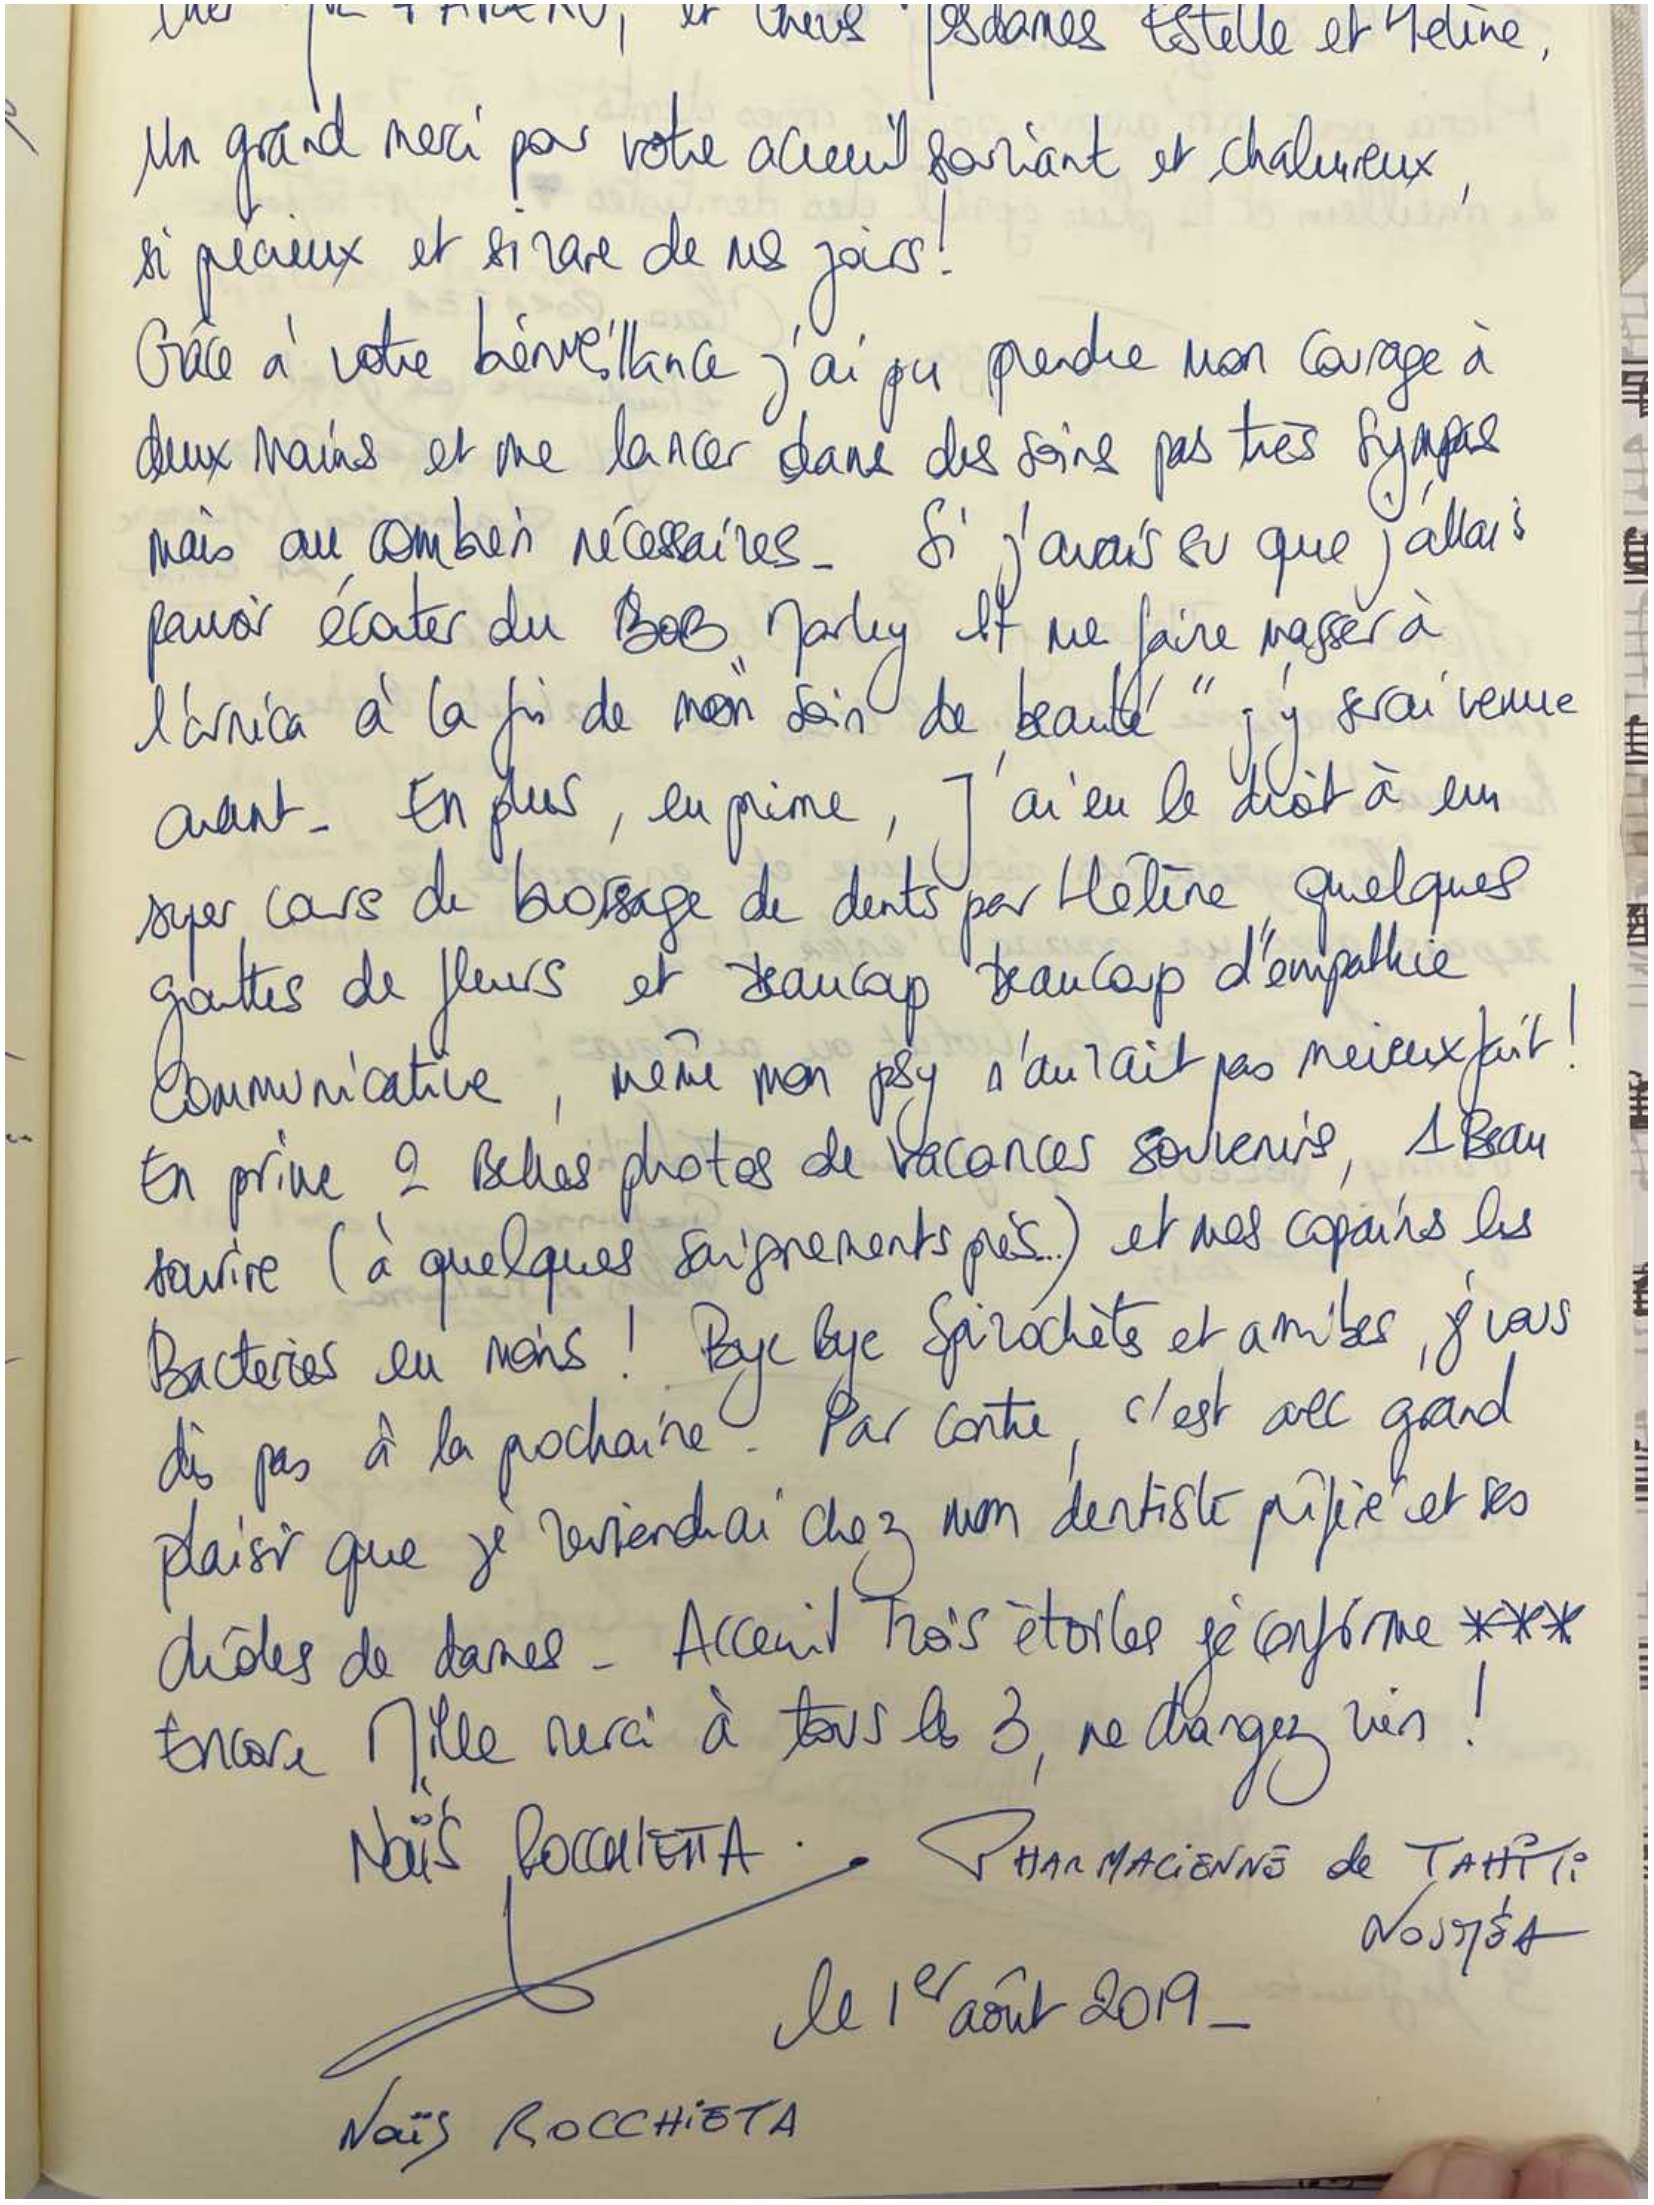 et Chers Mesdames Estelle et Hélène,
Un grand merci pour votre acceuil souriant et chaleureux,
si précieux et si rare de nos jours!
Grâce à votre bienveillance j'ai pu prendre mon courage à
deux mains et me lancer dans des soins pas très sympas
mais au combien nécessaires_ Si j'avais su que j'allais
pouvoir écouter du BOB Marley et me faire masser à
l'arnica à la fin de mon "soin de beauté" j'y serai venue
avant_ En plus, en prime, j'ai eu le droit à un
super cours de brossage de dents par Hélène, quelques
gouttes de fleurs et beaucoup beaucoup d'empathie
communicative, même mon psy n'aurait pas mieux fait!
En prime 2 Belles photos de vacances souvenirs, 1 Beau
sourire (à quelques saignements près...) et mes copains les
Bacteries en moins! Bye bye Spirochètes et amibes, j'vous
dis pas à la prochaine_ Par contre, c'est avec grand
plaisir que je reviendrai chez mon dentiste préféré et ses
drôles de dames_ Acceuil Trois étoiles je confirme ***
Encore Mille merci à tous les 3, ne changez rien!
Naïs ROCCHIETTA. PHARMACIENNE de TAHITI
NOUMÉA
le 1er août 2019_
Naïs ROCCHIETA